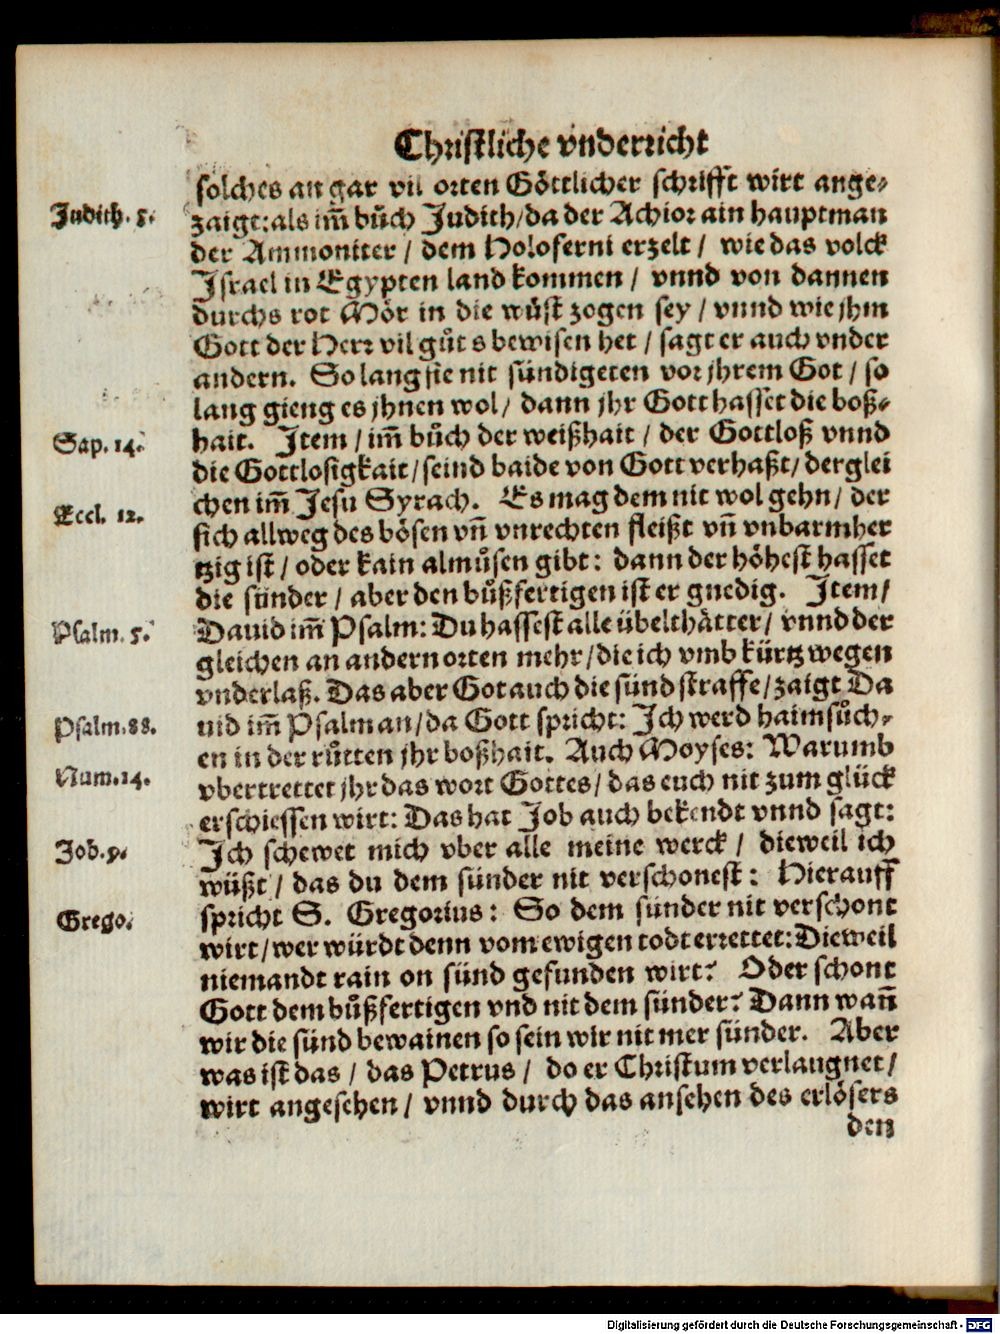 Christliche vnderricht
solches an gar vil orten Göttlicher schrifft wirt ange-
Judith. 5.
zaigt: als im̃ bůch Judith/ da der Achior ain hauptman
der Ammoniter / dem Holoferni erzelt / wie das volck
Israel in Egypten land kommen / vnnd von dannen
durchs rot Mör in die wůst zogen sey / vnnd wie jhm
Gott der Herr vil gůt s bewisen het / sagt er auch vnder
andern. So lang sie nit sündigeten vor jhrem Got / so
lang gieng es jhnen wol/ dann jhr Gott hasset die boß-
Sap. 14.
hait. Item / im̃ bůch der weißhait / der Gottloß vnnd
die Gottlosigkait/ seind baide von Gott verhaßt/ derglei
Eccl. 12.
chen im̃ Jesu Syrach. Es mag dem nit wol gehn/ der
sich allweg des bösen vñ vnrechten fleißt vñ vnbarmher
tzig ist / oder kain almůsen gibt: dann der höhest hasset
die sünder / aber den bůßfertigen ist er gnedig. Item/
Psalm. 5.
Dauid im̃ Psalm: Du hassest alle übelthätter/ vnnd der
gleichen an andern orten mehr/ die ich vmb kürtz wegen
vnderlaß. Das aber Got auch die sünd straffe/ zaigt Da
Psalm. 88.
uid im̃ Psalm an/ da Gott spricht: Ich werd haimsůch-
en in der růtten jhr boßhait. Auch Moyses: Warumb
Num. 14.
vbertrettet jhr das wort Gottes/ das euch nit zum glück
erschiessen wirt: Das hat Job auch bekendt vnnd sagt:
Job. 9.
Ich schewet mich vber alle meine werck / dieweil ich
wüßt / das du dem sünder nit verschonest: Hierauff
Grego.
spricht S. Gregorius: So dem sünder nit verschont
wirt/ wer würdt denn vom ewigen todt errettet: Dieweil
niemandt rain on sünd gefunden wirt? Oder schont
Gott dem bůßfertigen vnd nit dem sünder? Dann wañ
wir die sünd bewainen so sein wir nit mer sünder. Aber
was ist das / das Petrus / do er Christum verlaugnet/
wirt angesehen / vnnd durch das ansehen des erlösers
den
Digitalisierung gefördert durch die Deutsche Forschungsgemeinschaft - DFG